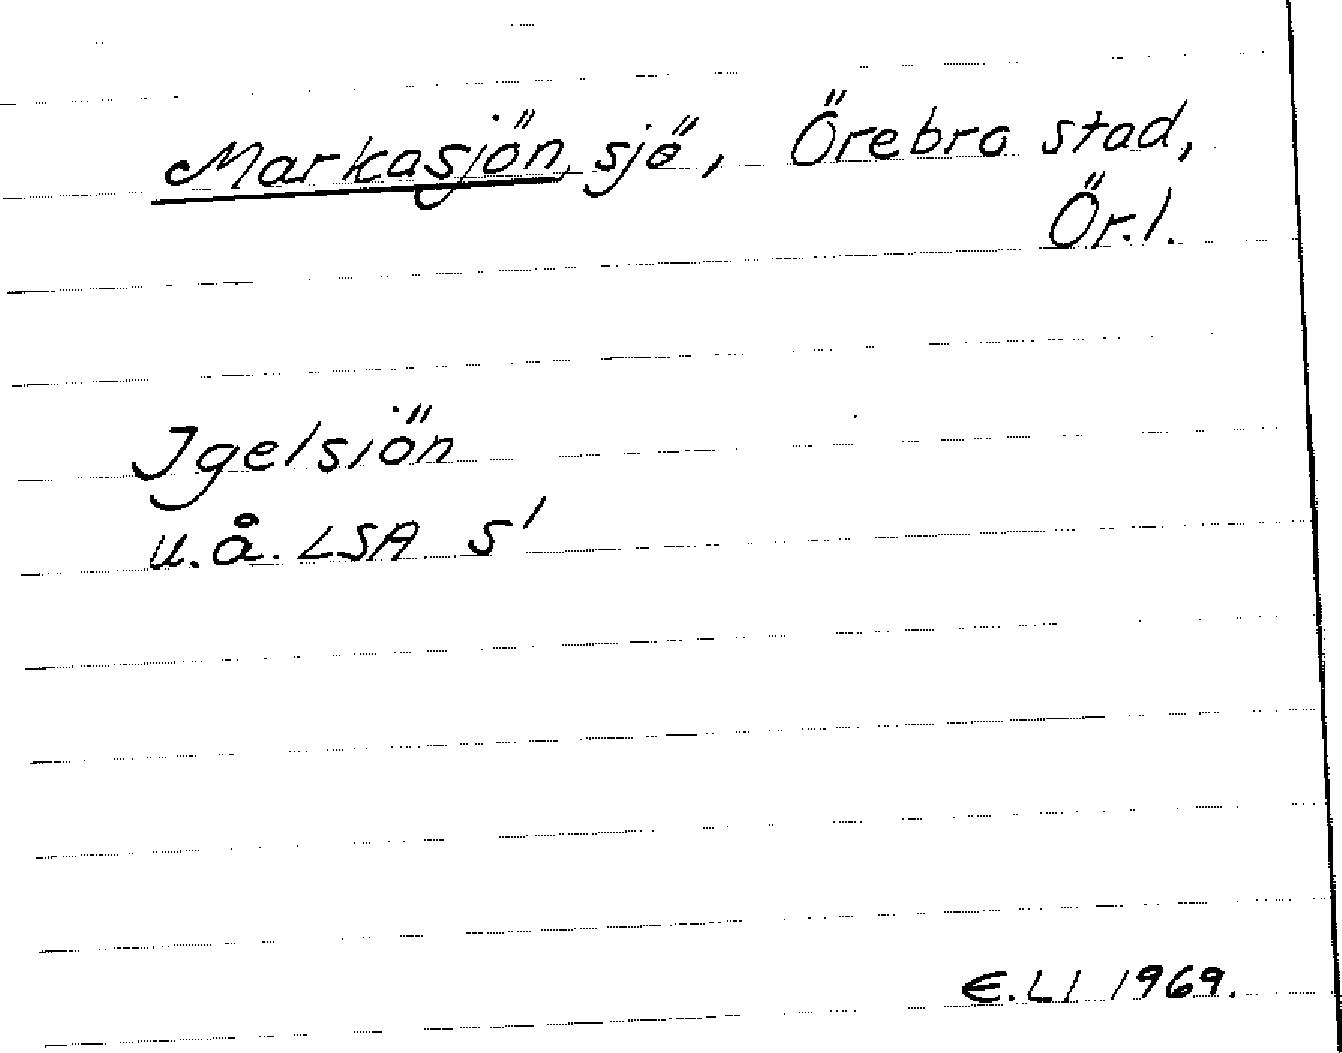 Markasjön, sjö, Örebro stad,
Ör.l.
Igelsiön
u.å. LSA S'
E.LI 1969.